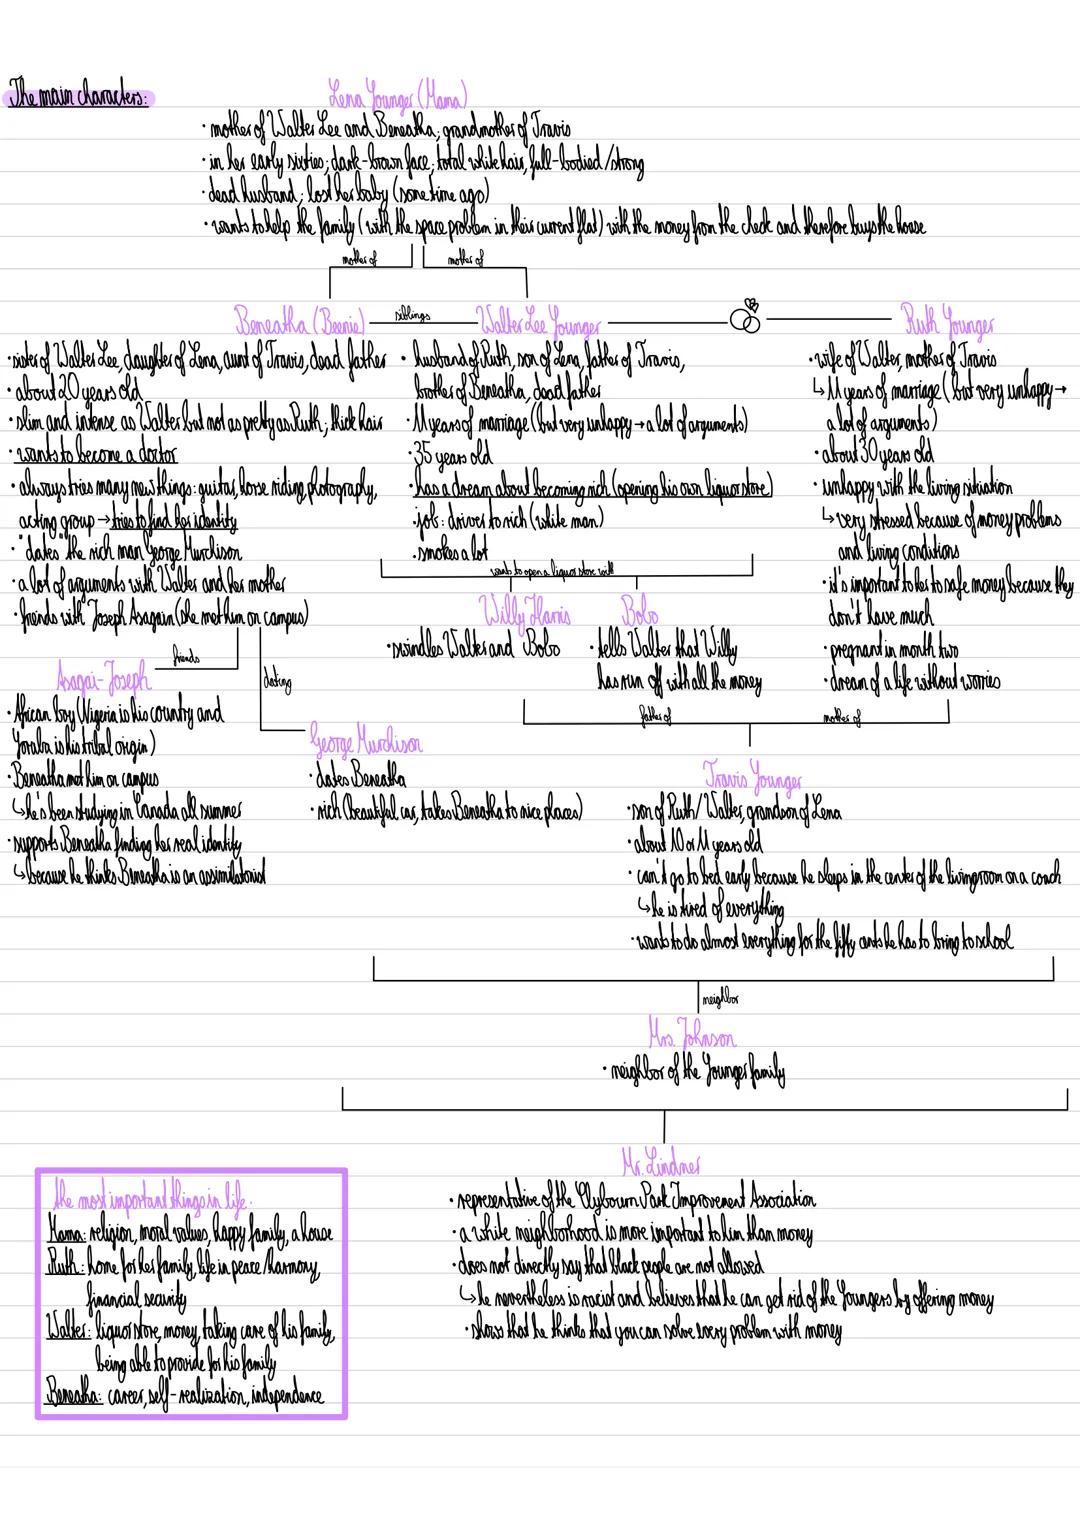 The main characters:
Lena Younger (Mama)
· mother of Walter Lee and Beneatha; grandmother of Travis
· in her early sixties; dark-brown face; total white hair, full-bodied / strong
· dead husband; lost her baby (some time ago)
· wants to help the family (with the space problem in their current flat) with the money from the check and therefore buys the house
mother of
mother of
Beneatha (Beenie)
siblings
Walter Lee Younger
Ruth Younger
· sister of Walter Lee, daughter of Lena, aunt of Travis, dead father
· about 20 years old
· slim and intense as Walter but not as pretty as Ruth; thick hair
· wants to become a doctor
· always tries many new things: guitar, horse riding, photography,
acting group → tries to find her identity
· "dates" the rich man George Murchison
· a lot of arguments with Walter and her mother
· friends with Joseph Asagain (she met him on campus)
· husband of Ruth, son of Lena, father of Travis,
brother of Beneatha, dead father
· 11 years of marriage (but very unhappy → a lot of arguments)
· 35 years old
· has a dream about becoming rich (opening his own liquor store)
· job: driver to rich (white man)
· smokes a lot
· wife of Walter, mother of Travis
↳ 11 years of marriage (but very unhappy →
a lot of arguments)
· about 30 years old
· unhappy with the living situation
↳ very stressed because of money problems
and living conditions
· it's important to her to safe money because they
don't have much
· pregnant in month two
· dream of a life without worries
wants to open a liquor store with
Willy Harris
· swindles Walter and Bobo
Bobo
· tells Walter that Willy
has run off with all the money
friends
dating
Asagai-Joseph
· African boy (Nigeria is his country and
Yoruba is his tribal origin)
· Beneatha met him on campus
↳ he's been studying in Canada all summer
· supports Beneatha finding her real identity
↳ because he thinks Beneatha is an assimilationist
George Murchison
· dates Beneatha
· rich (beautiful car, takes Beneatha to nice places)
father of
mother of
Travis Younger
· son of Ruth/Walter, grandson of Lena
· about 10 or 11 years old
· can't go to bed early because he sleeps in the center of the livingroom on a couch
↳ he is tired of everything
· wants to do almost everything for the fifty cents he has to bring to school
neighbor
Mrs. Johnson
· neighbor of the Younger family
Mr. Lindner
· representative of the Clybourn Park Improvement Association
· a white neighborhood is more important to him than money
· does not directly say that black people are not allowed
↳ he nevertheless is racist and believes that he can get rid of the Youngers by offering money
· shows that he thinks that you can solve every problem with money
the most important things in life:
Mama: religion, moral values, happy family, a house
Ruth: home for her family, life in peace/harmony,
financial security
Walter: liquor store, money, taking care of his family,
being able to provide for his family
Beneatha: career, self-realization, independence